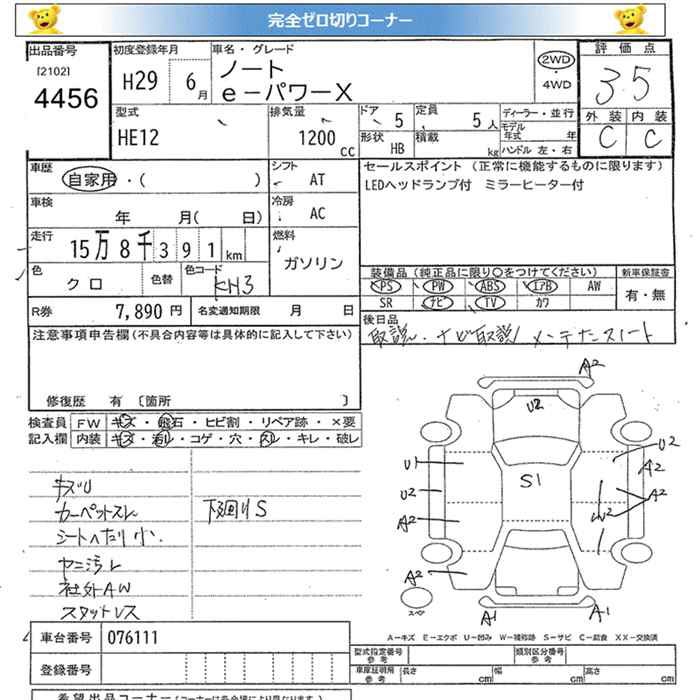 完全ゼロ切りコーナー
出品番号 初度登録年月 車名・グレード 評価点
[2102]
4456 H29 6月 ノート 2WD
e-パワーX ・4WD 3.5
型式 排気量 ドア 定員 ディーラー・並行 外装 内装
HE12 1200cc 5 5人 モデル年式 年 C C
形状 積載
HB kg ハンドル 左・右
車歴 シフト セールスポイント (正常に機能するものに限ります)
自家用・( ) AT LEDヘッドランプ付 ミラーヒーター付
車検 冷房
年 月( 日) AC
走行 燃料
15万8千391km ガソリン
色 色替 色コード 装備品 (純正品に限り○をつけてください) 新車保証書
クロ KH3 PS PW ABS エアB AW 有・無
SR ナビ TV カワ
R券 7,890円 名変通知期限 月 日 後日品
取説・ナビ取説 メンテナンスノート
注意事項申告欄 (不具合内容等は具体的に記入して下さい)
修復歴 有 〔箇所 〕
検査員 FW キズ・飛石・ヒビ割・リペア跡・×要
記入欄 内装 キズ・汚れ・コゲ・穴・スレ・キレ・破レ
キズU
カーペットスレ 下回りS
シートへたり小
ヤニ汚レ
社外AW
スタットレス
A2
U2
U1 U2
S1 A2
U2 A2
A2 W2
A2
スペア A1 A1
A-キズ E-エクボ U-凹み W-補修跡 S-サビ C-腐食 XX-交換済
車台番号 076111 型式指定番号 参考 類別区分番号 参考
登録番号 車庫証明用 参考 長さ cm 幅 cm 高さ cm
希望出品コーナー